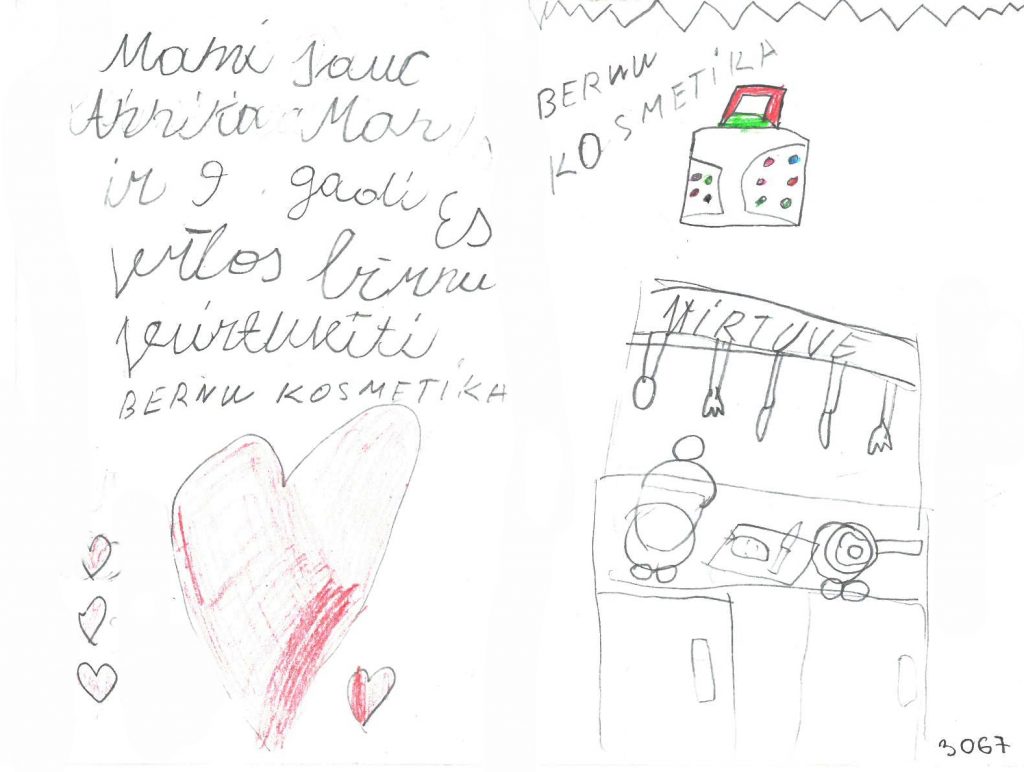 Mani sauc
Annika Man
ir 9. gadi Es
vēlos bērnu
BERNU KOSMETIKA
BERNU
KOSMETIKA
VIRTUVE
3067